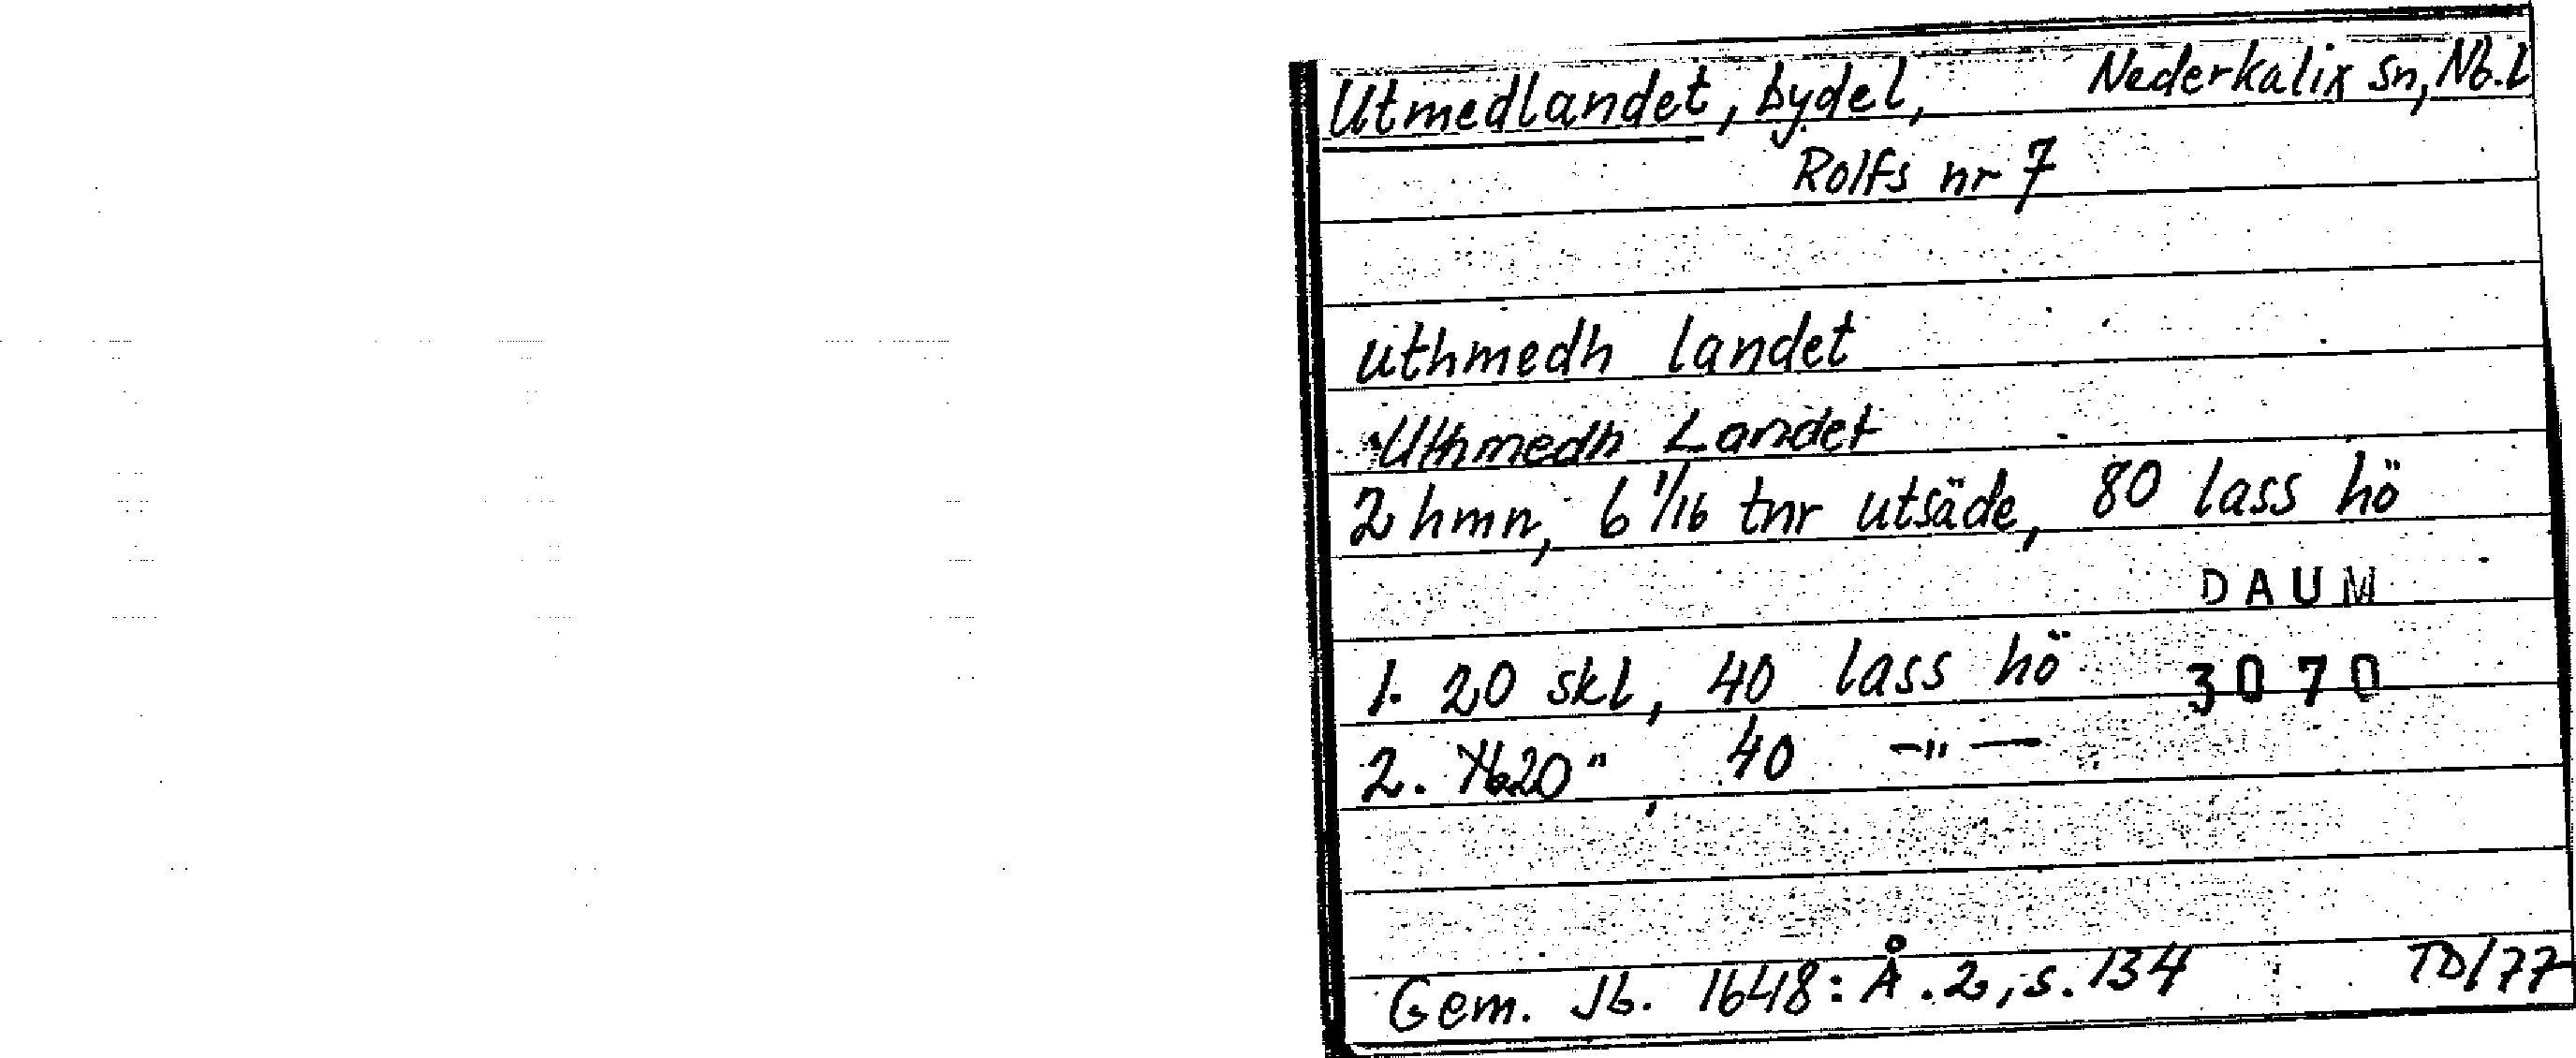 Utmedlandet, bydel, Nederkalix sn, Nb.l
Rolfs nr 7
uthmedh landet
Uthmedh Landet
2 hmn, 6 1/16 tnr utsäde, 80 lass hö
DAUM
1. 20 skl, 40 lass hö 3070
2. 20 ", 40 -"-
Gem. Jb. 1648: Å.2, s. 134 TD/77